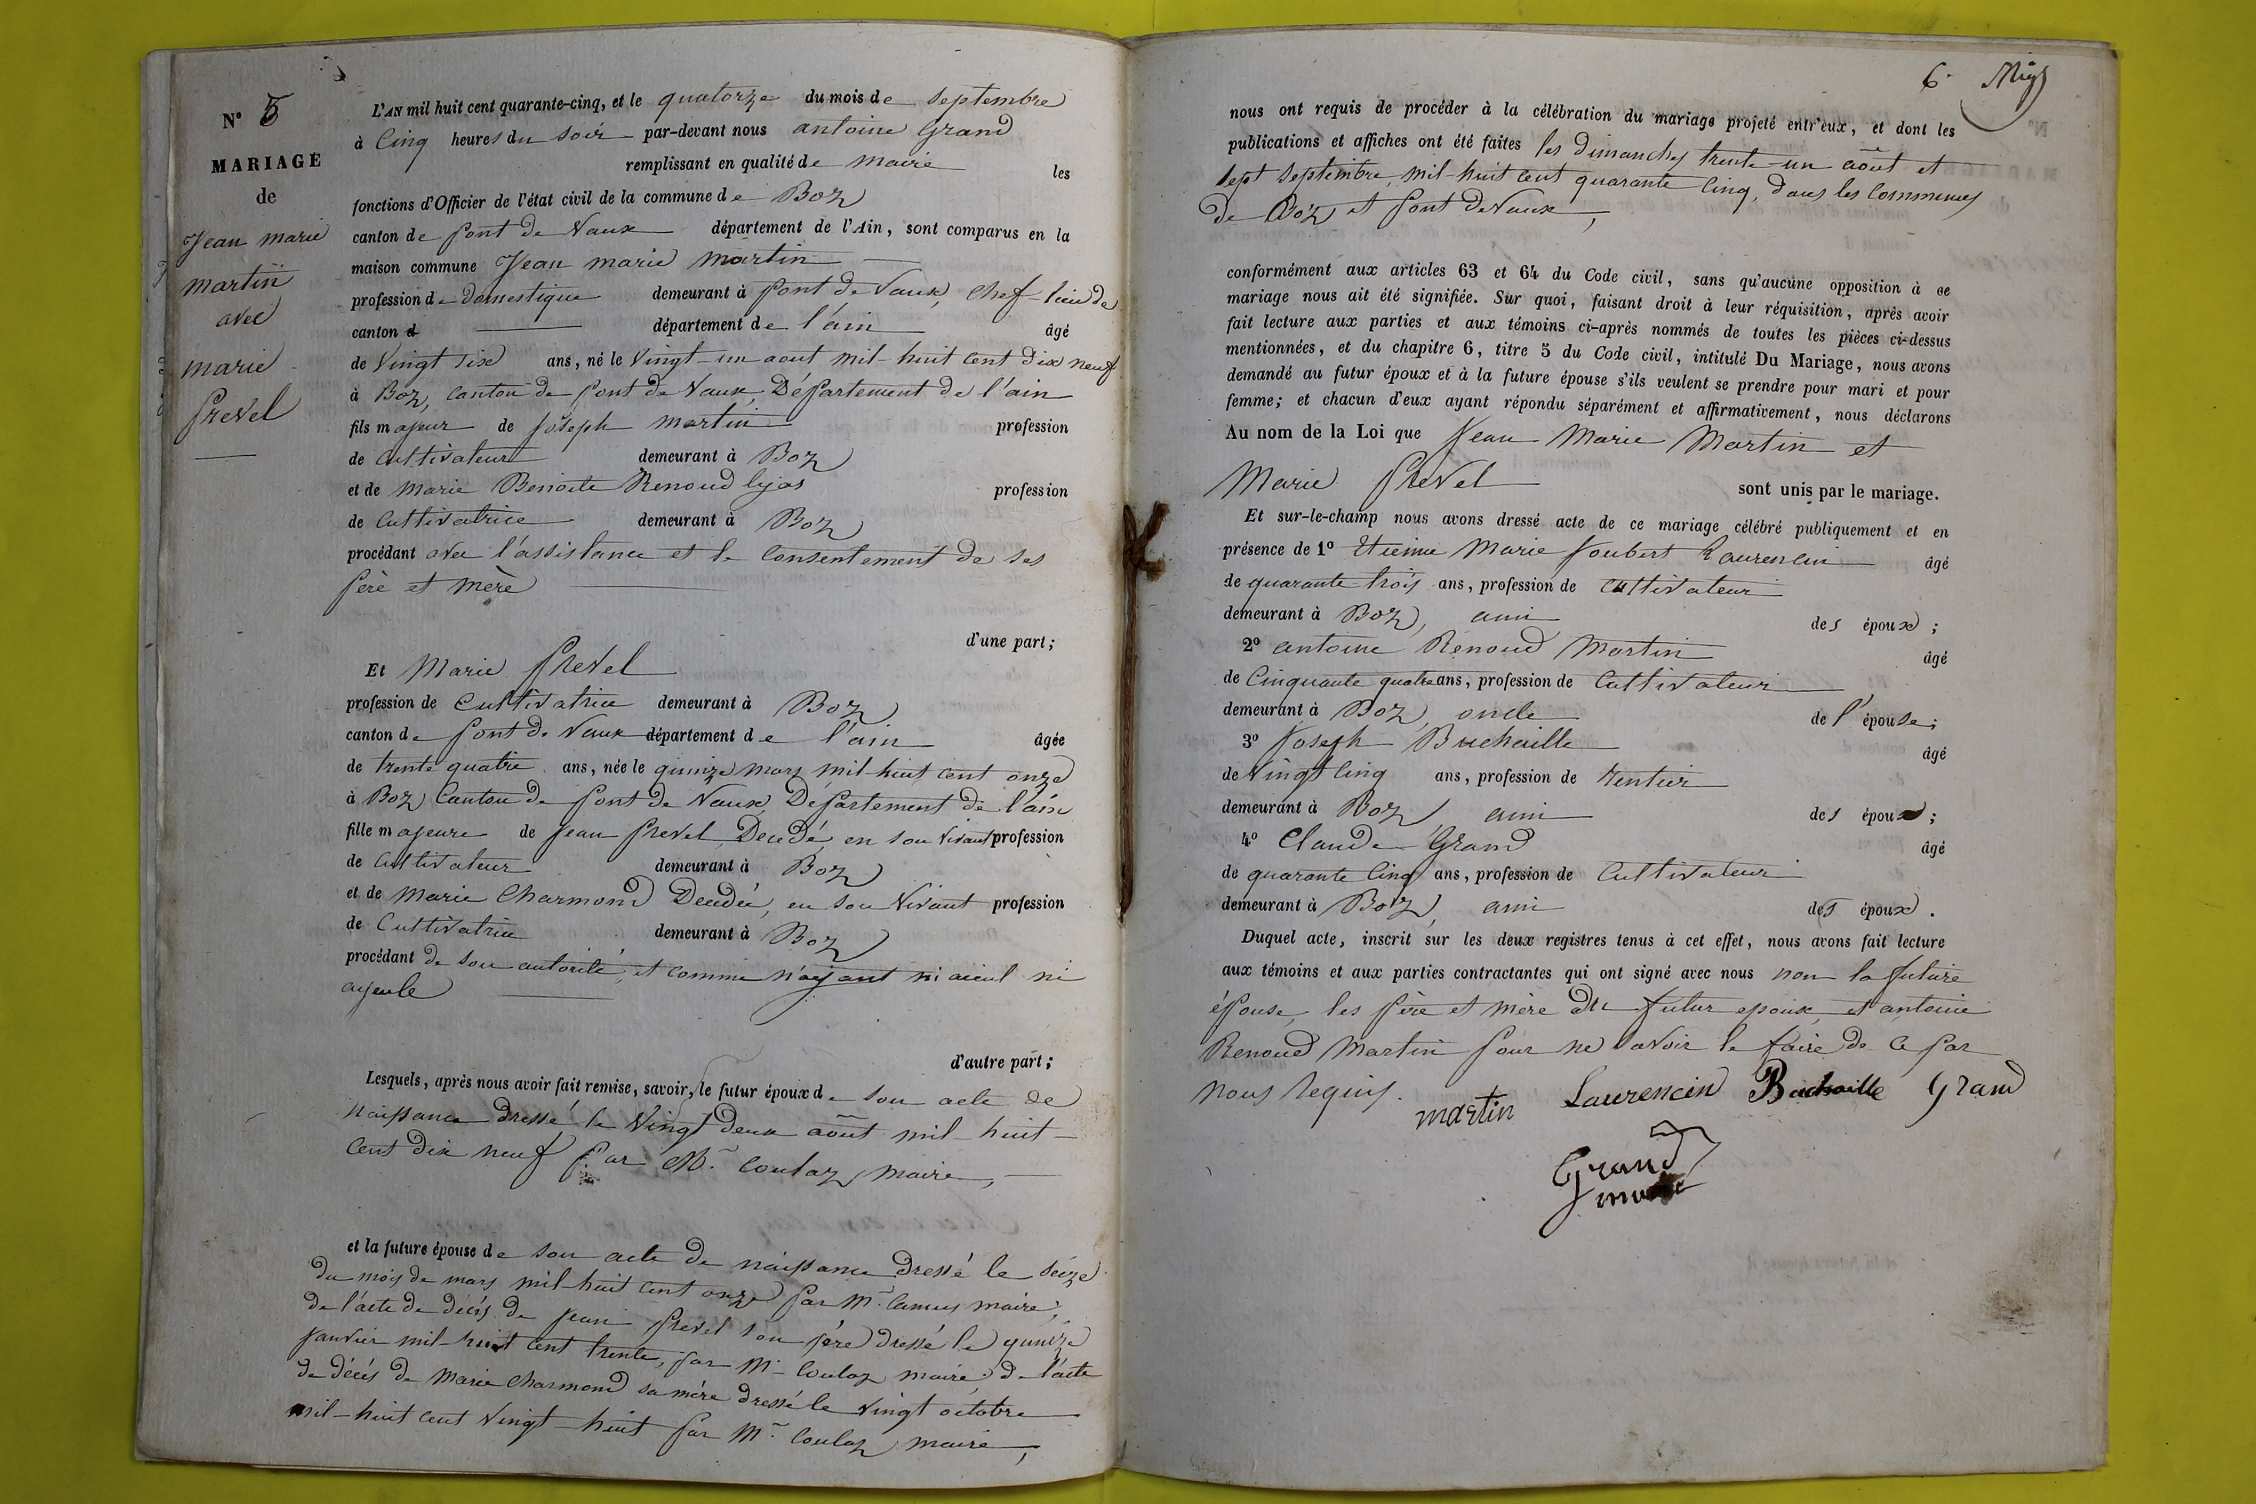 N° 5
MARIAGE
de
Jean marie
martin
avec
marie
Prevel
L'AN mil huit cent quarante-cinq, et le quatorze du mois de septembre
à Cinq heures du soir par-devant nous antoine Grand
remplissant en qualité de maire les
fonctions d'Officier de l'état civil de la commune de Boz
canton de pont de Vaux département de l'Ain, sont comparus en la
maison commune Jean marie martin
profession de domestique demeurant à pont de Vaux, chef-lieu de
canton d département de l'ain âgé
de Vingt six ans, né le Vingt-un aout mil-huit cent dix neuf
à Boz, canton de pont de Vaux, Département de l'ain
fils majeur de joseph martin profession
de cultivateur demeurant à Boz
et de marie Benoite Renoud lyas profession
de cultivatrice demeurant à Boz
procédant avec l'assistance et le consentement de ses
père et mère
d'une part;
Et Marie Prevel
profession de cultivatrice demeurant à Boz
canton de pont de Vaux département de l'ain âgée
de trente quatre ans, née le quinze mars mil-huit cent onze
à Boz Canton de pont de Vaux Département de l'ain
fille majeure de jean prevel, Decédé, en son vivant profession
de cultivateur demeurant à Boz
et de marie Charmond Decedée, en son vivant profession
de cultivatrice demeurant à Boz
procédant de son autorité, et comme n'ayant ni aieul ni
ayeule
d'autre part;
Lesquels, après nous avoir fait remise, savoir, le futur époux de son acte de
naissance dressé le Vingt deux août mil-huit-
cent dix neuf par Mr. coulaz maire,
et la future épouse de son acte de naissance dressé le seize
du mois de mars mil-huit cent onze par Mr. Camus maire,
de l'acte de décès de jean prevel son père dressé le quinze
janvier mil-huit cent trente, par Mr. Coulaz maire; de l'acte
de décès de Marie Charmond sa mère dressé le vingt octobre
mil-huit cent vingt-huit par Mr. coulaz maire,
6.
nous ont requis de procéder à la célébration du mariage projeté entr'eux, et dont les
publications et affiches ont été faites les dimanches trente-un août et
sept septembre, mil-huit cent quarante cinq, dans les Communes
de Boz et pont de Vaux,
conformément aux articles 63 et 64 du Code civil, sans qu'aucune opposition à ce
mariage nous ait été signifiée. Sur quoi, faisant droit à leur réquisition, après avoir
fait lecture aux parties et aux témoins ci-après nommés de toutes les pièces ci-dessus
mentionnées, et du chapitre 6, titre 5 du Code civil, intitulé Du Mariage, nous avons
demandé au futur époux et à la future épouse s'ils veulent se prendre pour mari et pour
femme; et chacun d'eux ayant répondu séparément et affirmativement, nous déclarons
Au nom de la Loi que Jean Marie Martin et
Marie Prevel sont unis par le mariage.
Et sur-le-champ nous avons dressé acte de ce mariage célébré publiquement et en
présence de 1° Etienne Marie Joubert Laurencin âgé
de quarante trois ans, profession de cultivateur
demeurant à Boz, ami des époux;
2° antoine Renoud Martin âgé
de Cinquante quatre ans, profession de Cultivateur
demeurant à Boz, oncle de l'épouse;
3° Joseph Buchaille âgé
de Vingt Cinq ans, profession de rentier
demeurant à Boz, ami des époux;
4° Claude Grand âgé
de quarante Cinq ans, profession de Cultivateur
demeurant à Boz, ami des époux.
Duquel acte, inscrit sur les deux registres tenus à cet effet, nous avons fait lecture
aux témoins et aux parties contractantes qui ont signé avec nous non la future
épouse, les père et mère du futur epoux, et antoine
Renoud Martin pour ne savoir le faire de ce par
nous requis.
martin Laurencin Buchaille Grand
Grand
maire